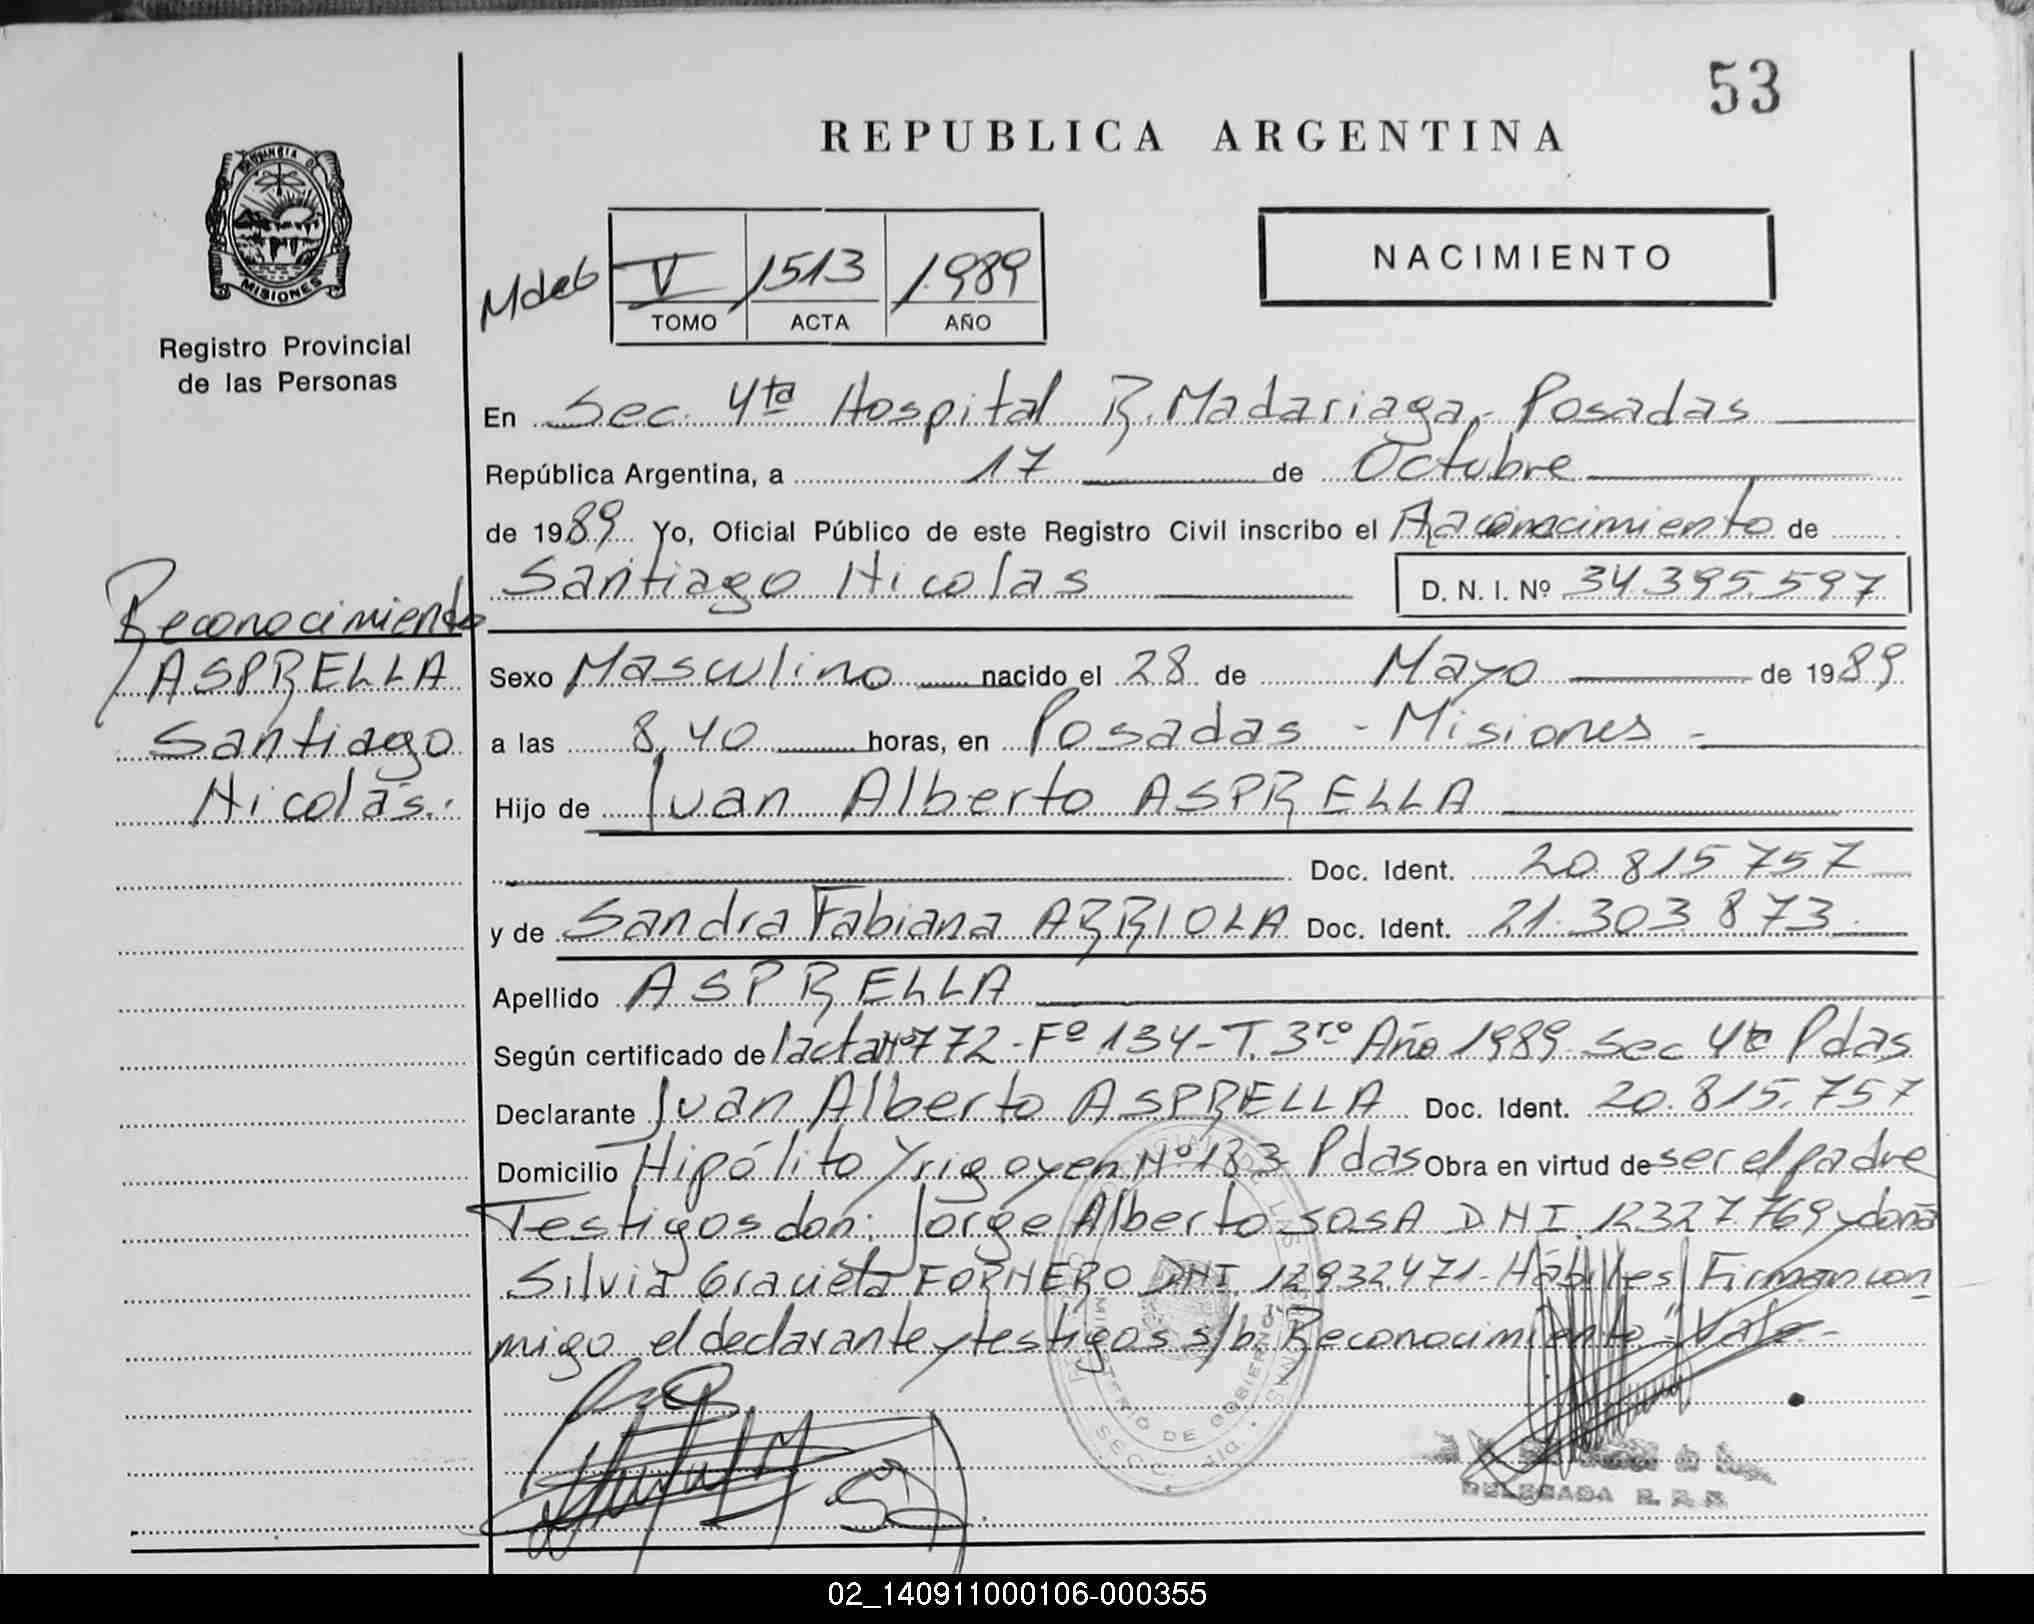 53
REPUBLICA ARGENTINA
PROVINCIA DE
MISIONES
Registro Provincial
de las Personas
V 1513 1.989
TOMO ACTA AÑO
NACIMIENTO
En Sec. 4ta Hospital R. Madariaga - Posadas
República Argentina, a 17 de Octubre
de 1989 Yo, Oficial Público de este Registro Civil inscribo el Reconocimiento de
Santiago Nicolas D. N. I. Nº 34.395.597
Reconocimiento
ASPRELLA
Santiago
Nicolás.
Sexo Masculino nacido el 28 de Mayo de 1989
a las 8,40 horas, en Posadas - Misiones -
Hijo de Juan Alberto ASPRELLA
Doc. Ident. 20.815 757
y de Sandra Fabiana ARRIOLA Doc. Ident. 21.303 873.
Apellido ASPRELLA
Según certificado de l'acta Nº 772 - Fº 134 - T. 3ro Año 1989 Sec 4ta Pdas
Declarante Juan Alberto ASPRELLA Doc. Ident. 20.815.757
Domicilio Hipólito Yrigoyen Nº 183 Pdas Obra en virtud de ser el padre
Testigos don: Jorge Alberto SOSA D N I. 12327769 y doña
Silvia Graciela FORNERO DNI. 12932471 - Hábiles Firman con
migo el declarante y testigos s/b. "Reconocimiento" Vale -
MINISTERIO DE GOBIERNO
SECC. 4ta
DELEGADA R. P. P.
02_140911000106-000355